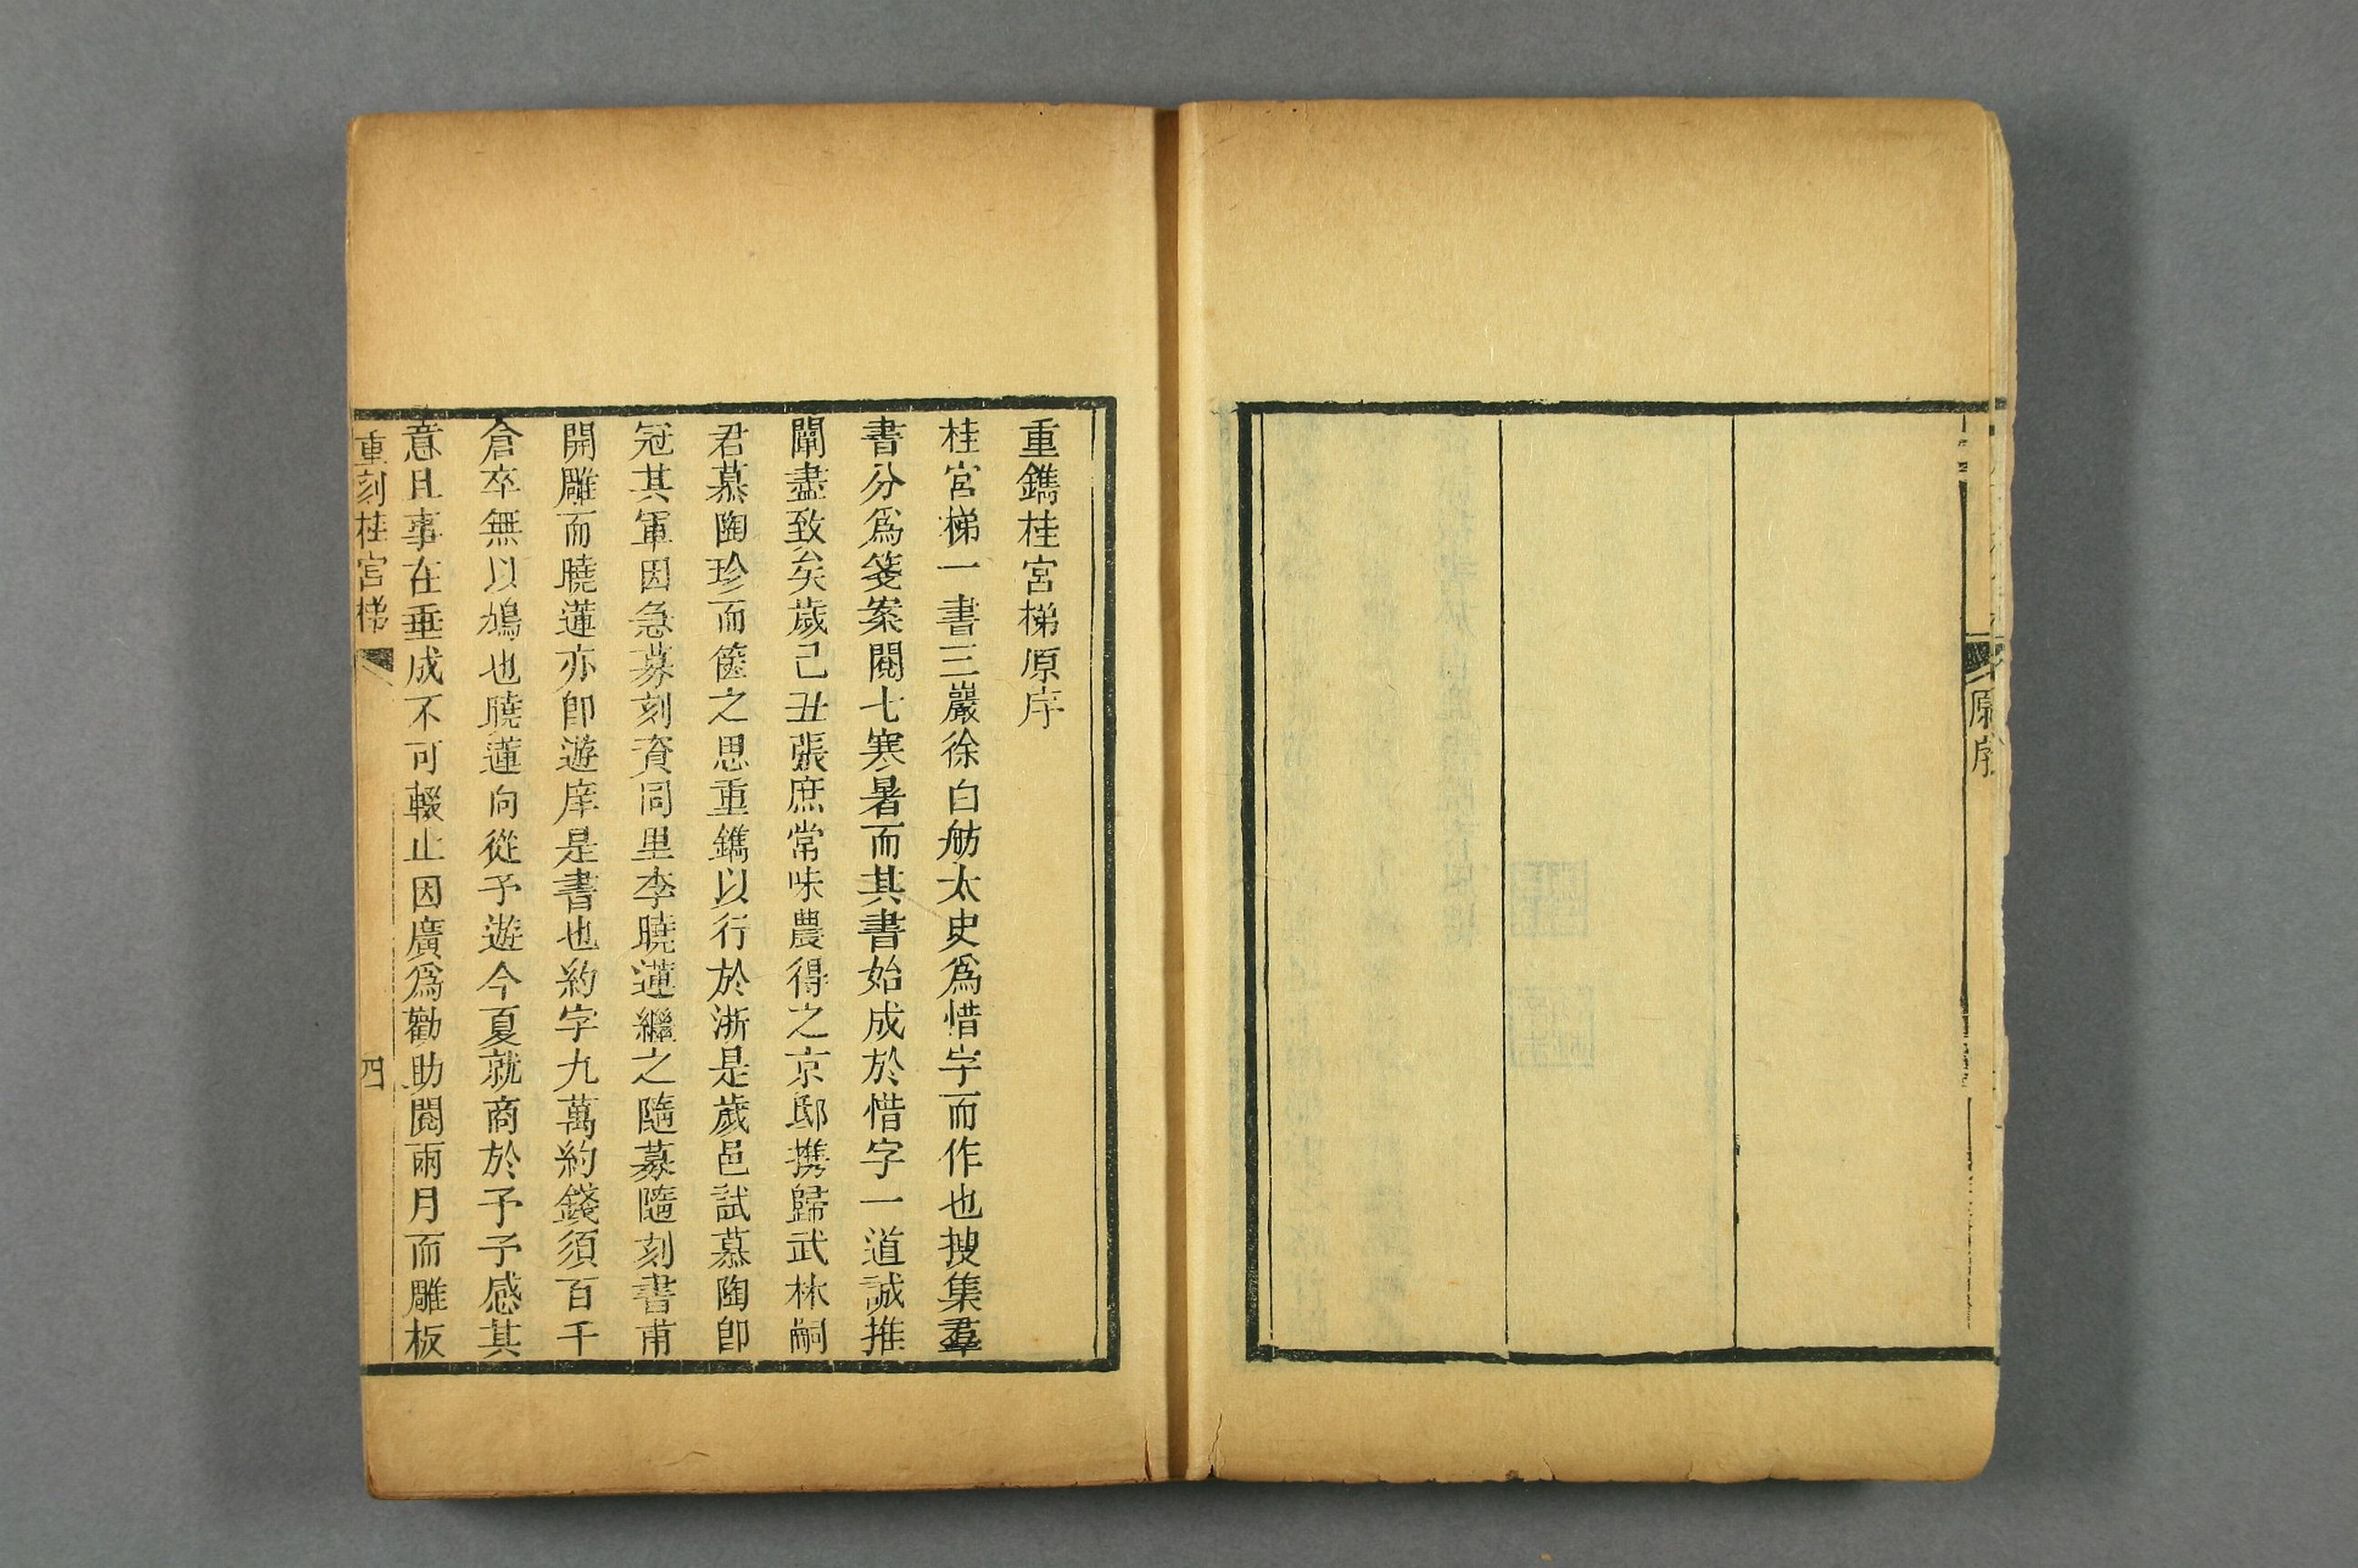 原序
重鐫桂宮梯原序
桂宮梯一書三巖徐白舫太史爲惜字而作也搜集羣
書分爲箋案閱七寒暑而其書始成於惜字一道誠推
闡盡致矣歲己丑張庶常味農得之京邸携歸武林嗣
君慕陶珍而篋之思重鐫以行於浙是歲邑試慕陶卽
冠其軍因急募刻資同里李曉蓮繼之隨募隨刻書甫
開雕而曉蓮亦卽遊庠是書也約字九萬約錢須百千
倉卒無以鳩也曉蓮向從予遊今夏就商於予予感其
意且事在垂成不可輟止因廣爲勸助閱兩月而雕板
重刻桂宮梯
四